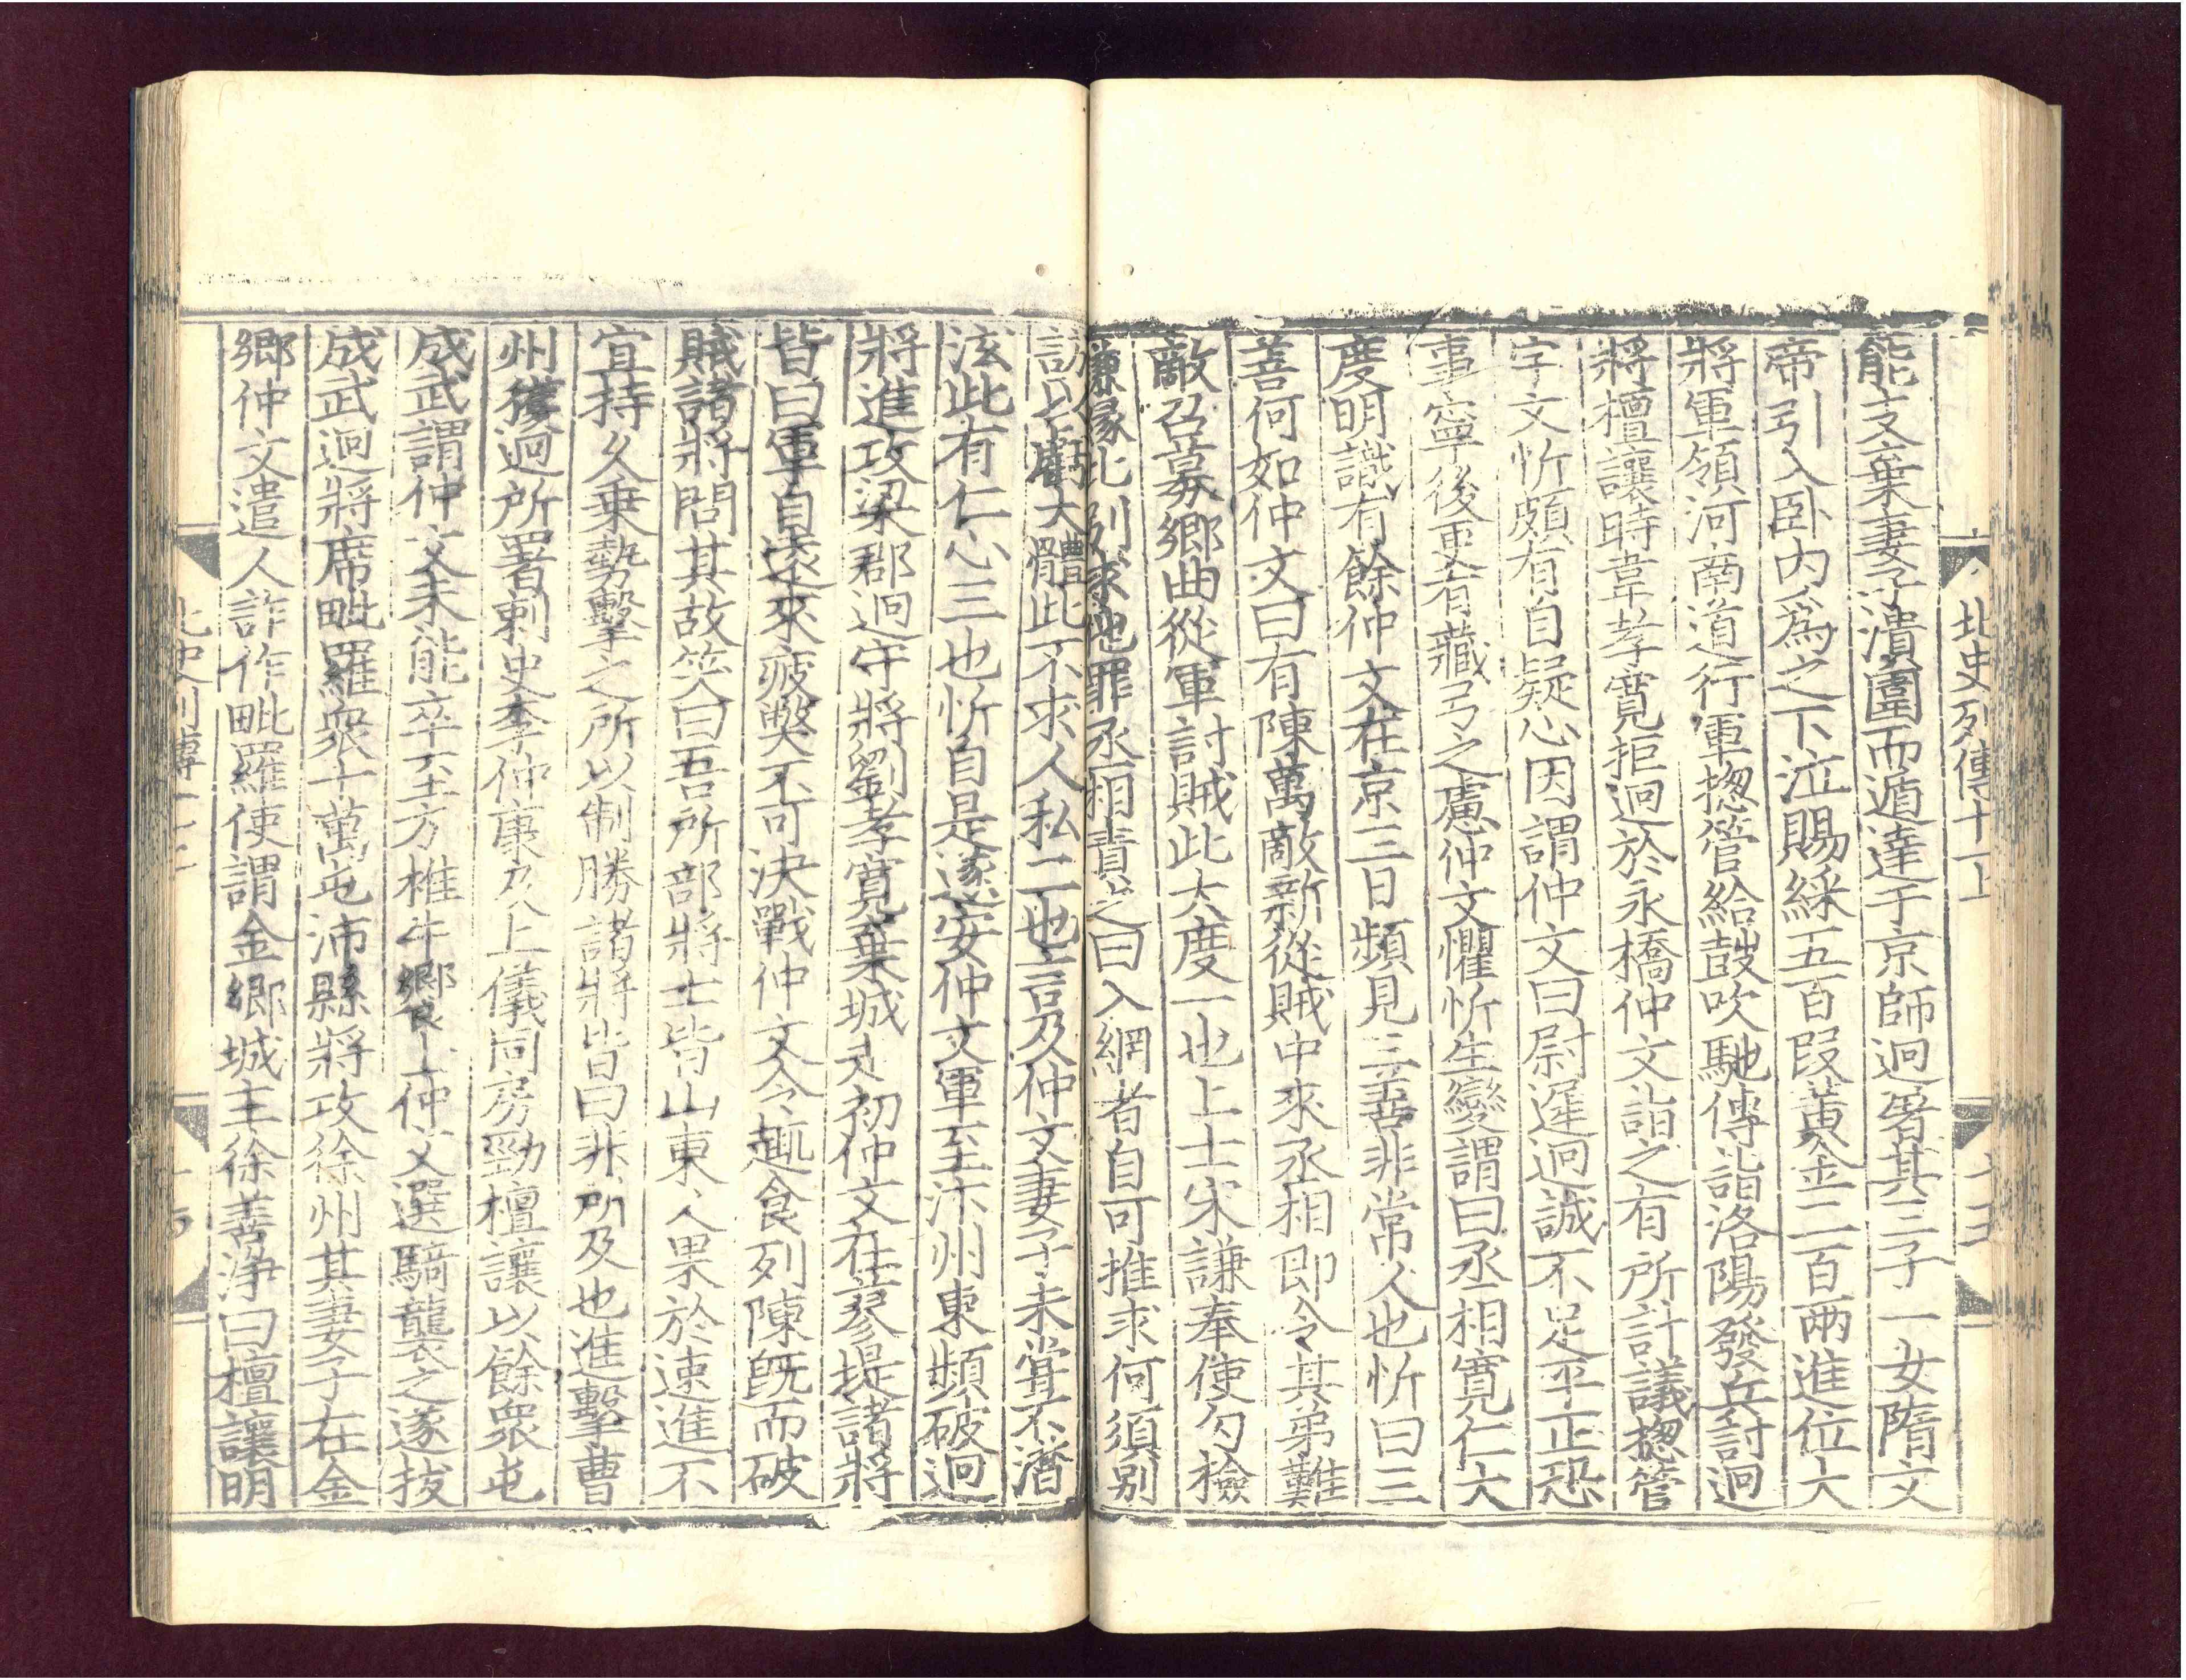 北史列傳十一上
能支棄妻子潰圍而遁達于京師迥害其三子一女隋文
帝引入卧内爲之下泣賜綵五百段黃金二百兩進位大
將軍領河南道行軍揔管給鼓吹馳傳詣洛陽發兵討迥
將檀讓時韋孝寬拒迥於永橋仲文詣之有所計議揔管
宇文忻頗有自疑心因謂仲文曰尉遲迥誠不足平正恐
事寧後更有藏弓之慮仲文懼忻生變謂曰丞相寬仁大
度明識有餘仲文在京三日頻見三善非常人也忻曰三
善何如仲文曰有陳萬敵新從賊中來丞相即令其弟難
敵召募鄉曲從軍討賊此大度一也上士宋謙奉使勾檢
謙緣此別求他罪丞相責之曰入網者自可推求何須別
訪以虧大體此不求人私二也言及仲文妻子未嘗不潸
泫此有仁心三也忻自是遂安仲文軍至汴州東頻破迥
將進攻梁郡迥守將劉孝寬棄城走初仲文在蓼堤諸將
皆曰軍自遠來疲獘不可決戰仲文令趣食列陳旣而破
賊諸將問其故笑曰吾所部將士皆山東人果於速進不
宜持久乗勢擊之所以制勝諸將皆曰非所及也進擊曹
州獲迥所署刺史李仲康及上儀同房勁檀讓以餘衆屯
成武謂仲文未能卒至方椎牛鄉食士仲文選騎襲之遂拔
成武迥將席毗羅衆十萬屯沛縣將攻徐州其妻子在金
鄉仲文遣人詐作毗羅使謂金鄉城主徐善淨曰檀讓明
北史列傳十一